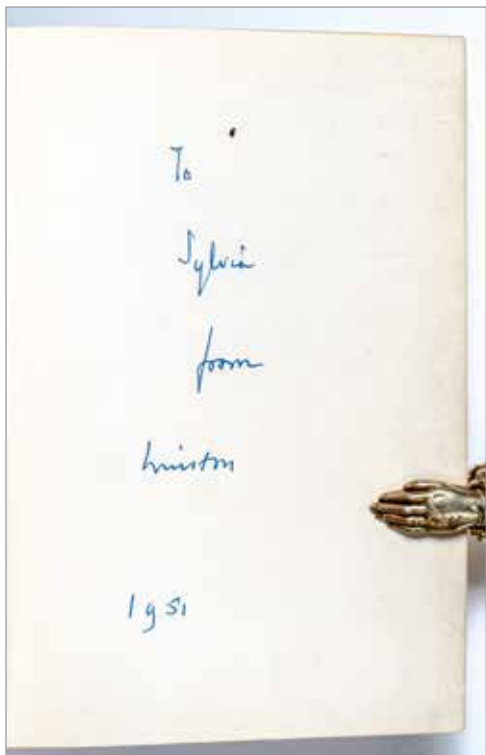 To
Sylvia
from
Winston
1951